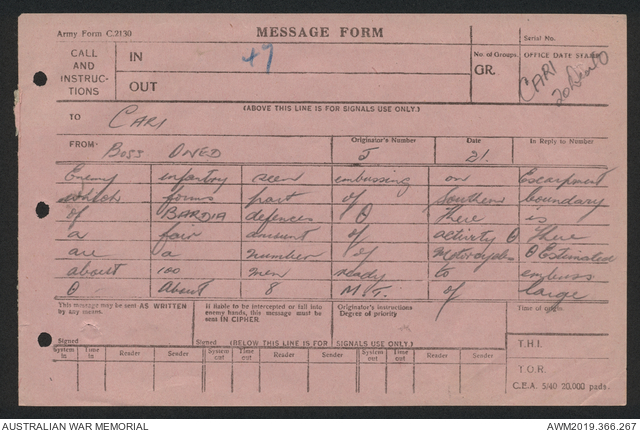 Army Form C.2130
MESSAGE FORM
Serial No.
CALL AND INSTRUC-TIONS
IN
49
No. of Groups.
GR.
OFFICE DATE STAMP
CARI
OUT
(ABOVE THIS LINE IS FOR SIGNALS USE ONLY.)
TO CARI
FROM: Originator's Number Date In Reply to Number
BOSS ONED 5 21.
Enemy infantry seen embussing on Escarpment
which forms part of Southern boundary
of BARDIA defences θ There is
a fair amount of activity θ There
are a number of Motorcycles θ Estimated
about 100 men ready to embuss
θ About 8 M.T. of large
This message may be sent AS WRITTEN by any means.
If liable to be intercepted or fall into enemy hands, this message must be sent IN CIPHER.
Originator's instructions
Degree of priority
Time of origin.
Signed
Signed
(BELOW THIS LINE IS FOR SIGNALS USE ONLY.)
T.H.I.
System in Time in Reader Sender System out Time out Reader Sender System out Time out Reader Sender
T.O.R.
C.E.A. 5/40 20,000 pads.
AUSTRALIAN WAR MEMORIAL
AWM2019.366.267